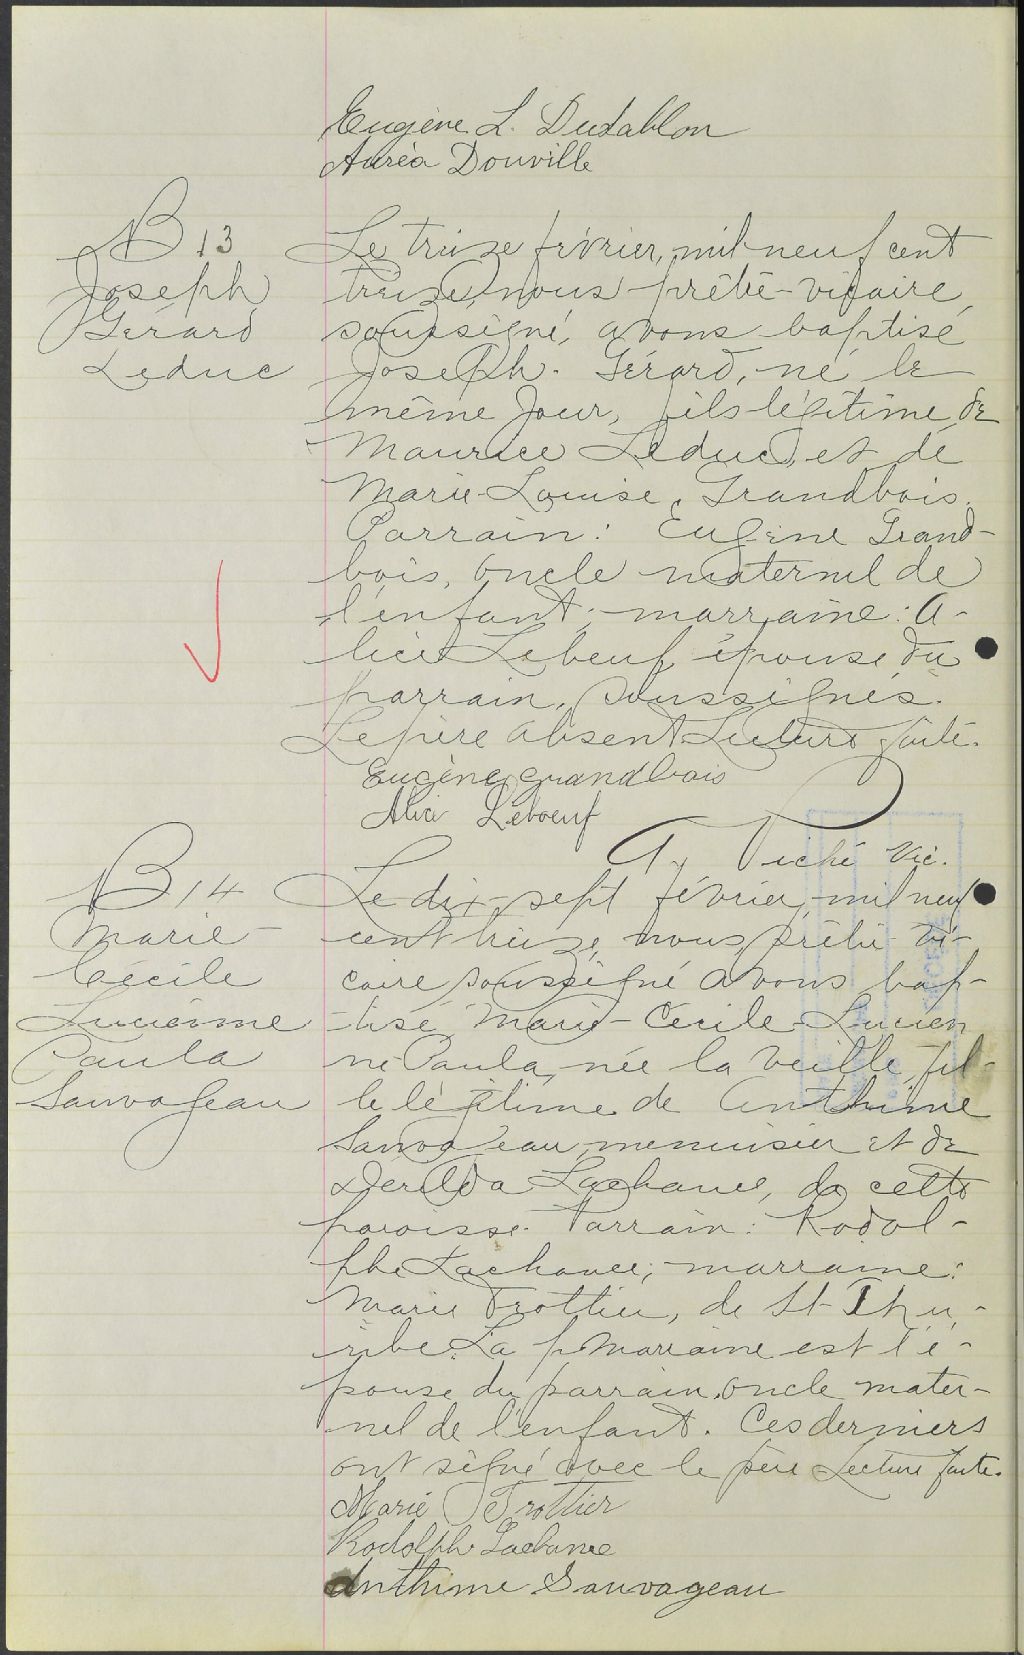 Eugène L. Dusablon
Auréa Douville
B 13
Joseph
Gérard
Leduc
Le treize février, mil neuf cent
treize, nous prêtre-vicaire
soussigné, avons baptisé
Joseph-Gérard, né le
même jour, fils légitime de
Maurice Leduc, et de
Marie-Louise Grandbois.
Parrain: Eugène Grand-
bois, oncle maternel de
l'enfant; marraine: A-
lice Lebeuf épouse du
parrain, soussignés.
Le père absent Lecture faite.
Eugène grandbois
Alice Leboeuf
Piché Vic.
B 14
Marie-
Cécile
Lucienne
Paula
Sauvageau
Le dix-sept février, mil neuf
cent treize, nous, prêtre vi-
caire soussigné avons bap-
tisé, Marie-Cécile-Lucien
ne-Paula, née la veille, fil-
le légitime de Anthime
Sauvageau, menuisier et de
Lachance, de cette
paroisse. Parrain: Rodol-
phe Lachance; marraine:
Marie Trottier, de St-Thu-
ribe. La marraine est l'é-
pouse du parrain, oncle mater-
nel de l'enfant. Ces derniers
ont signé avec le père Lecture faite.
Marie Trottier
Rodolph Lachance
Anthime Sauvageau